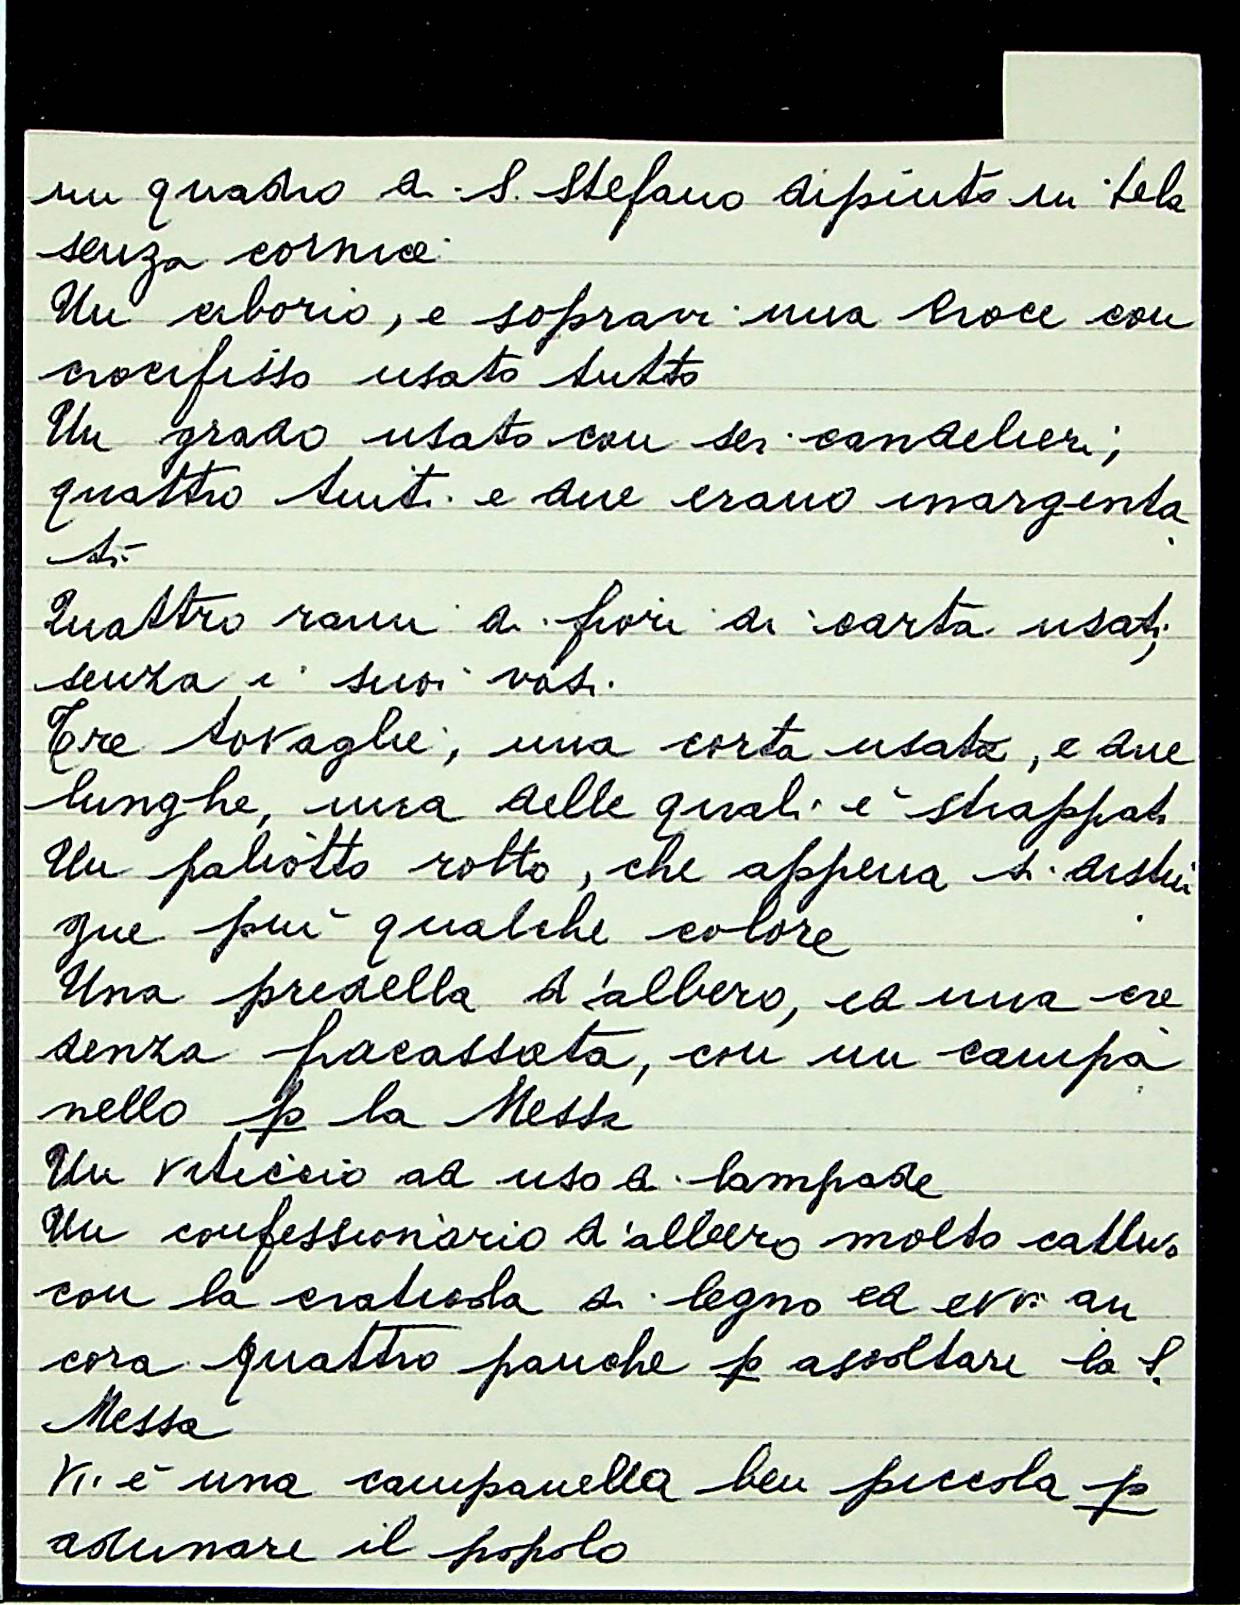 un quadro di S. Stefano dipinto in tela
senza cornice
Un ciborio, e sopravi una Croce con
crocifisso usato tutto
Un grado usato con sei candelieri;
quattro tinti e due erano inargenta
ti
Quattro rami di fiori di carta usati,
senza i suoi vasi.
Tre tovaglie, una corta usata, e due
lunghe, una delle quali è strappata
Un paliotto rotto, che appena si distin
gue più qualche colore
Una predella d'albero, ed una cre
denza fracassata, con un campa
nello p la Messa
Un viticcio ad uso di lampade
Un confessionario d'albero molto cattivo
con la craticola di legno ed evvi an
cora quattro panche p ascoltare la S.
Messa
Vi è una campanella ben piccola p
adunare il popolo